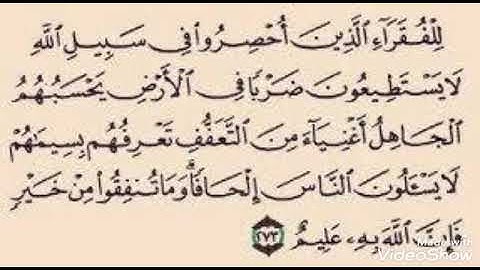 لِلْفُقَرَآءِ ٱلَّذِينَ أُحْصِرُوا۟ فِى سَبِيلِ ٱللَّهِ
لَا يَسْتَطِيعُونَ ضَرْبًا فِى ٱلْأَرْضِ يَحْسَبُهُمُ
ٱلْجَاهِلُ أَغْنِيَآءَ مِنَ ٱلتَّعَفُّفِ تَعْرِفُهُم بِسِيمَٰهُمْ
لَا يَسْـَٔلُونَ ٱلنَّاسَ إِلْحَافًا ۗ وَمَا تُنفِقُوا۟ مِنْ خَيْرٍ
فَإِنَّ ٱللَّهَ بِهِۦ عَلِيمٌ ٢٧٣
Made with
VideoShow